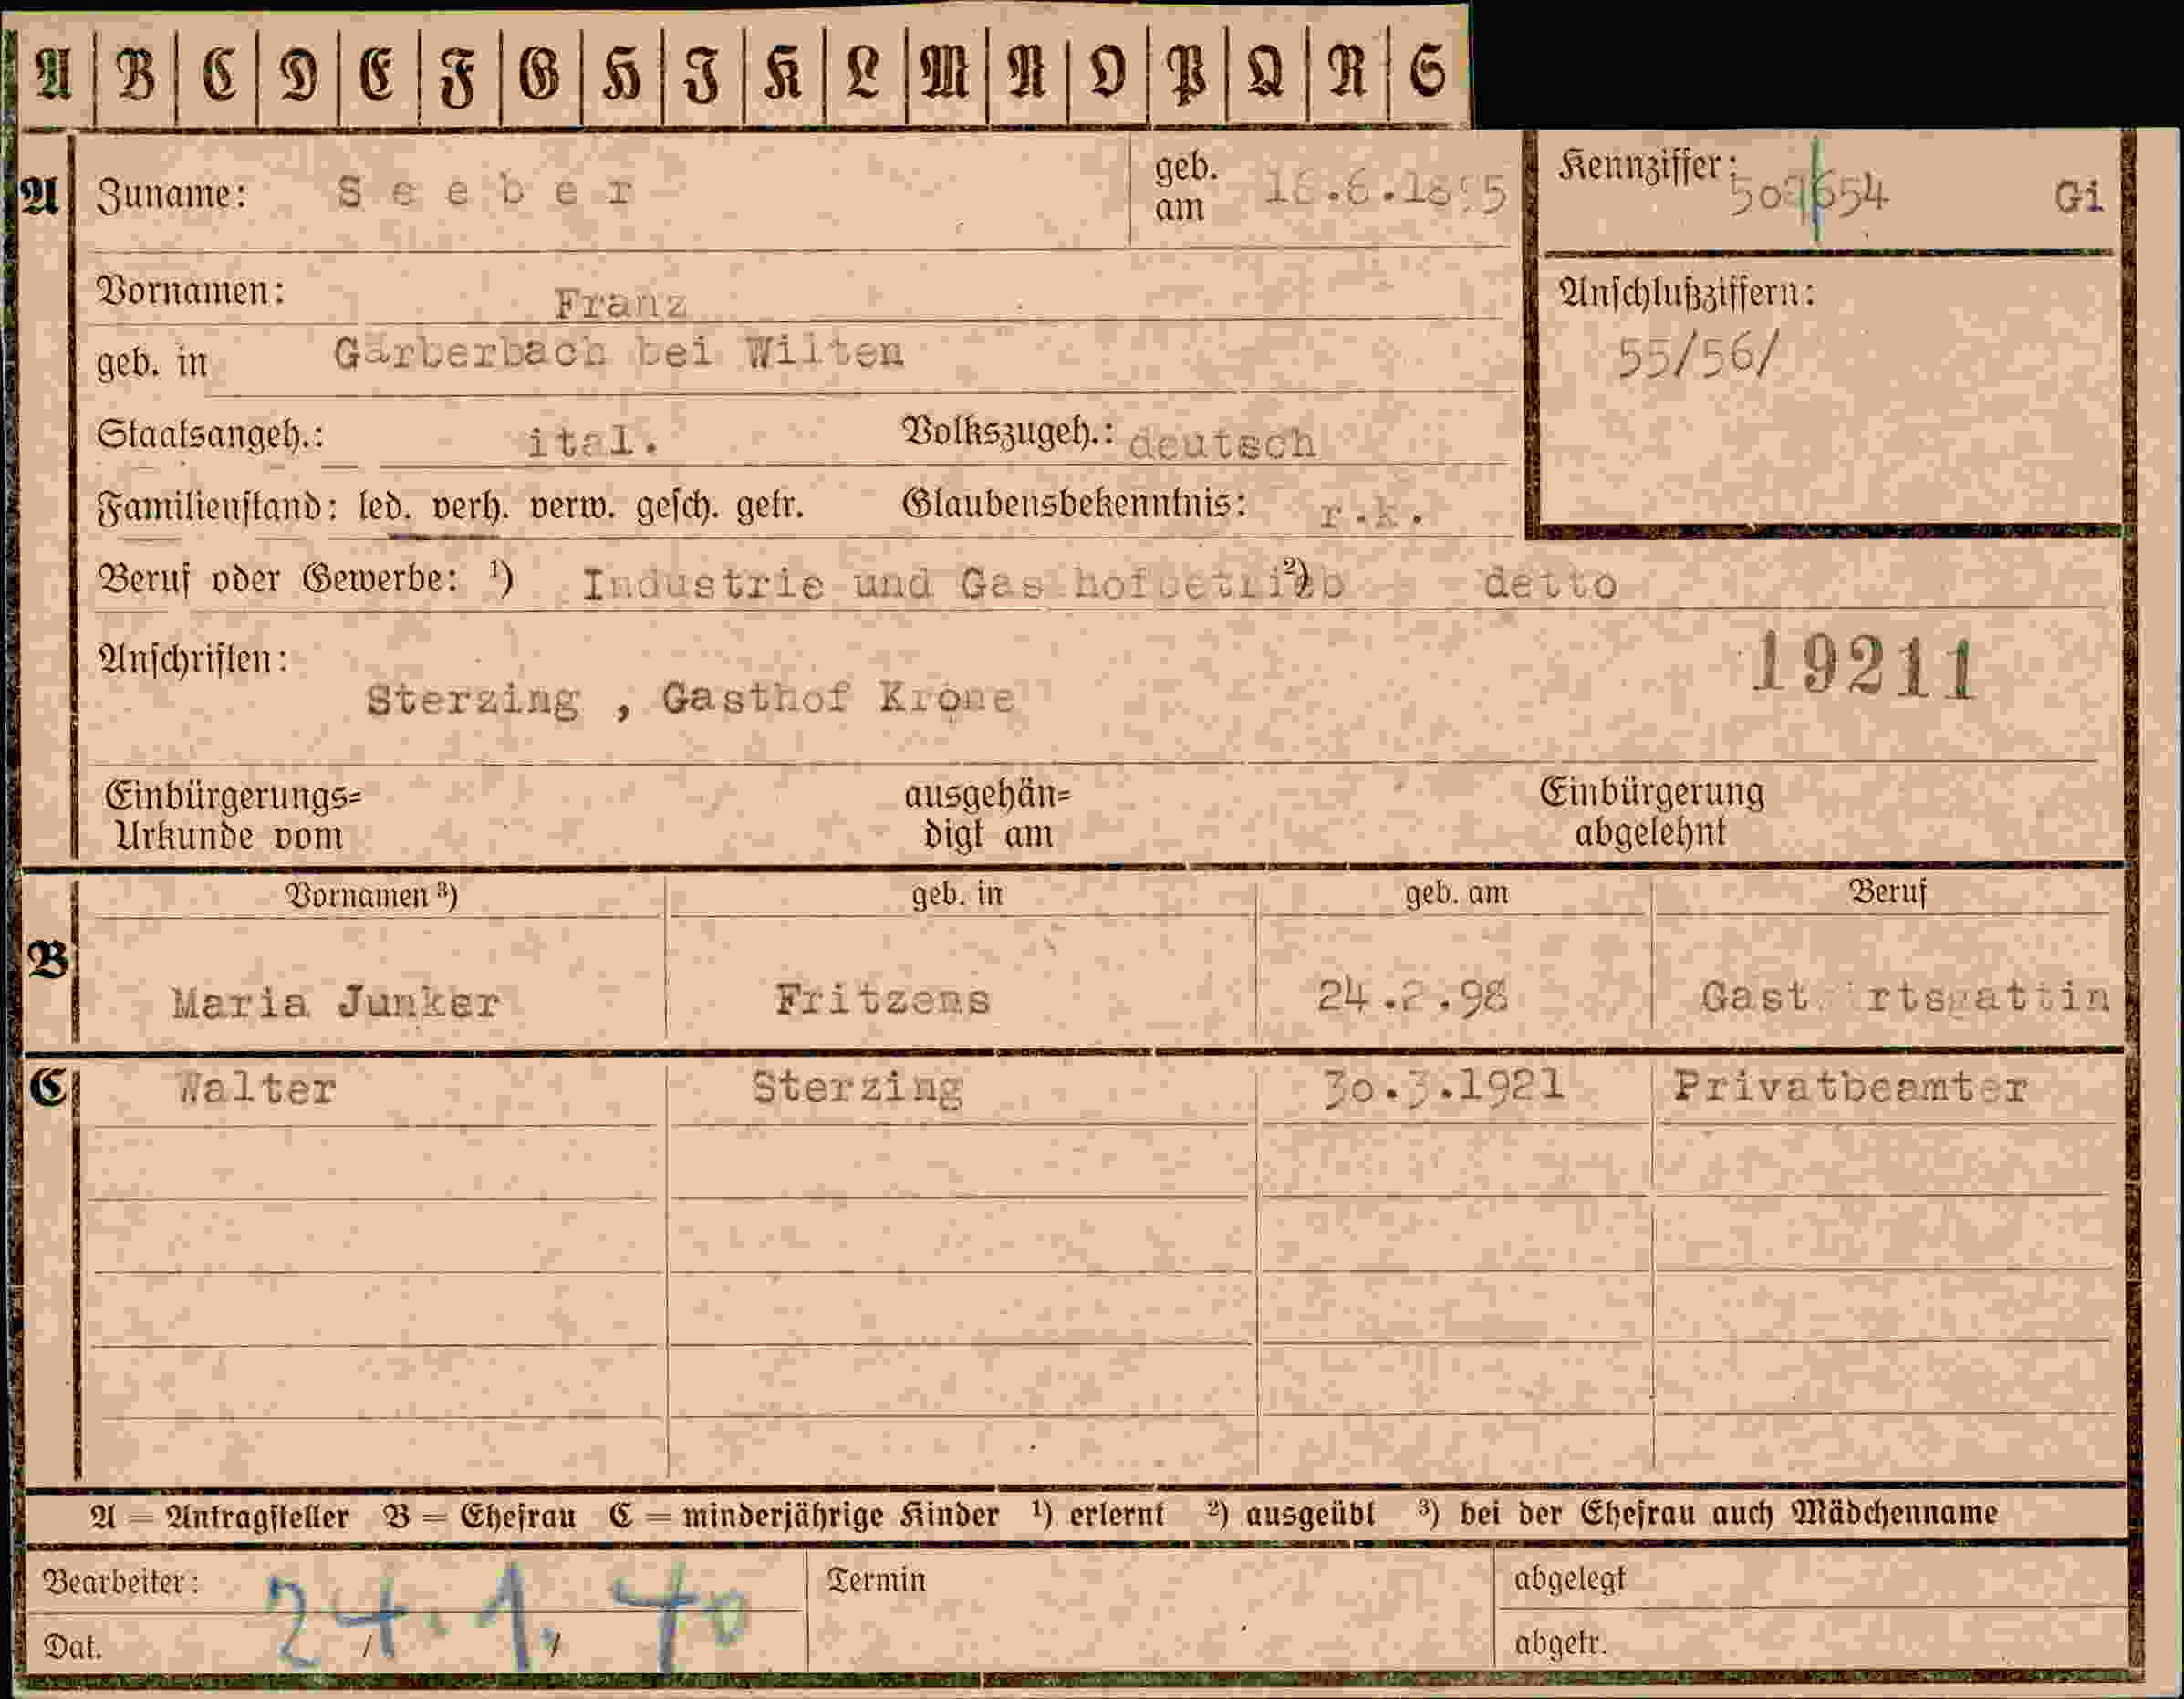 A B C D E F G H I K L M N O P Q R S
A Zuname: Seeber geb. am 16.6.1895 Kennziffer: Gi
Vornamen: Franz Anschlußziffern:
geb. in Gärberbach bei Wilten 55/56/
Staatsangeh.: ital. Volkszugeh.: deutsch
Familienstand: led. verh. verw. gesch. getr. Glaubensbekenntnis: r.k.
Beruf oder Gewerbe: ¹) Industrie und Gasthofbetrieb ²) detto
Anschriften: 19211
Sterzing , Gasthof Krone
Einbürgerungs= ausgehän= Einbürgerung
Urkunde vom digt am abgelehnt
B Vornamen ³) geb. in geb. am Beruf
Maria Junker Fritzens 24.2.98 Gastwirtsgattin
C Walter Sterzing 30.3.1921 Privatbeamter
A = Antragsteller B = Ehefrau C = minderjährige Kinder ¹) erlernt ²) ausgeübt ³) bei der Ehefrau auch Mädchenname
Bearbeiter: Termin abgelegt
Dat. 24.1.40 abgetr.